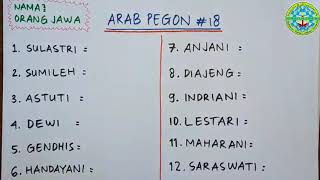 NAMA²
ORANG JAWA
ARAB PEGON #18
1. SULASTRI =
2. SUMILEH =
3. ASTUTI =
4. DEWI =
5. GENDHIS =
6. HANDAYANI =
7. ANJANI =
8. DIAJENG =
9. INDRIANI =
10. LESTARI =
11. MAHARANI =
12. SARASWATI =